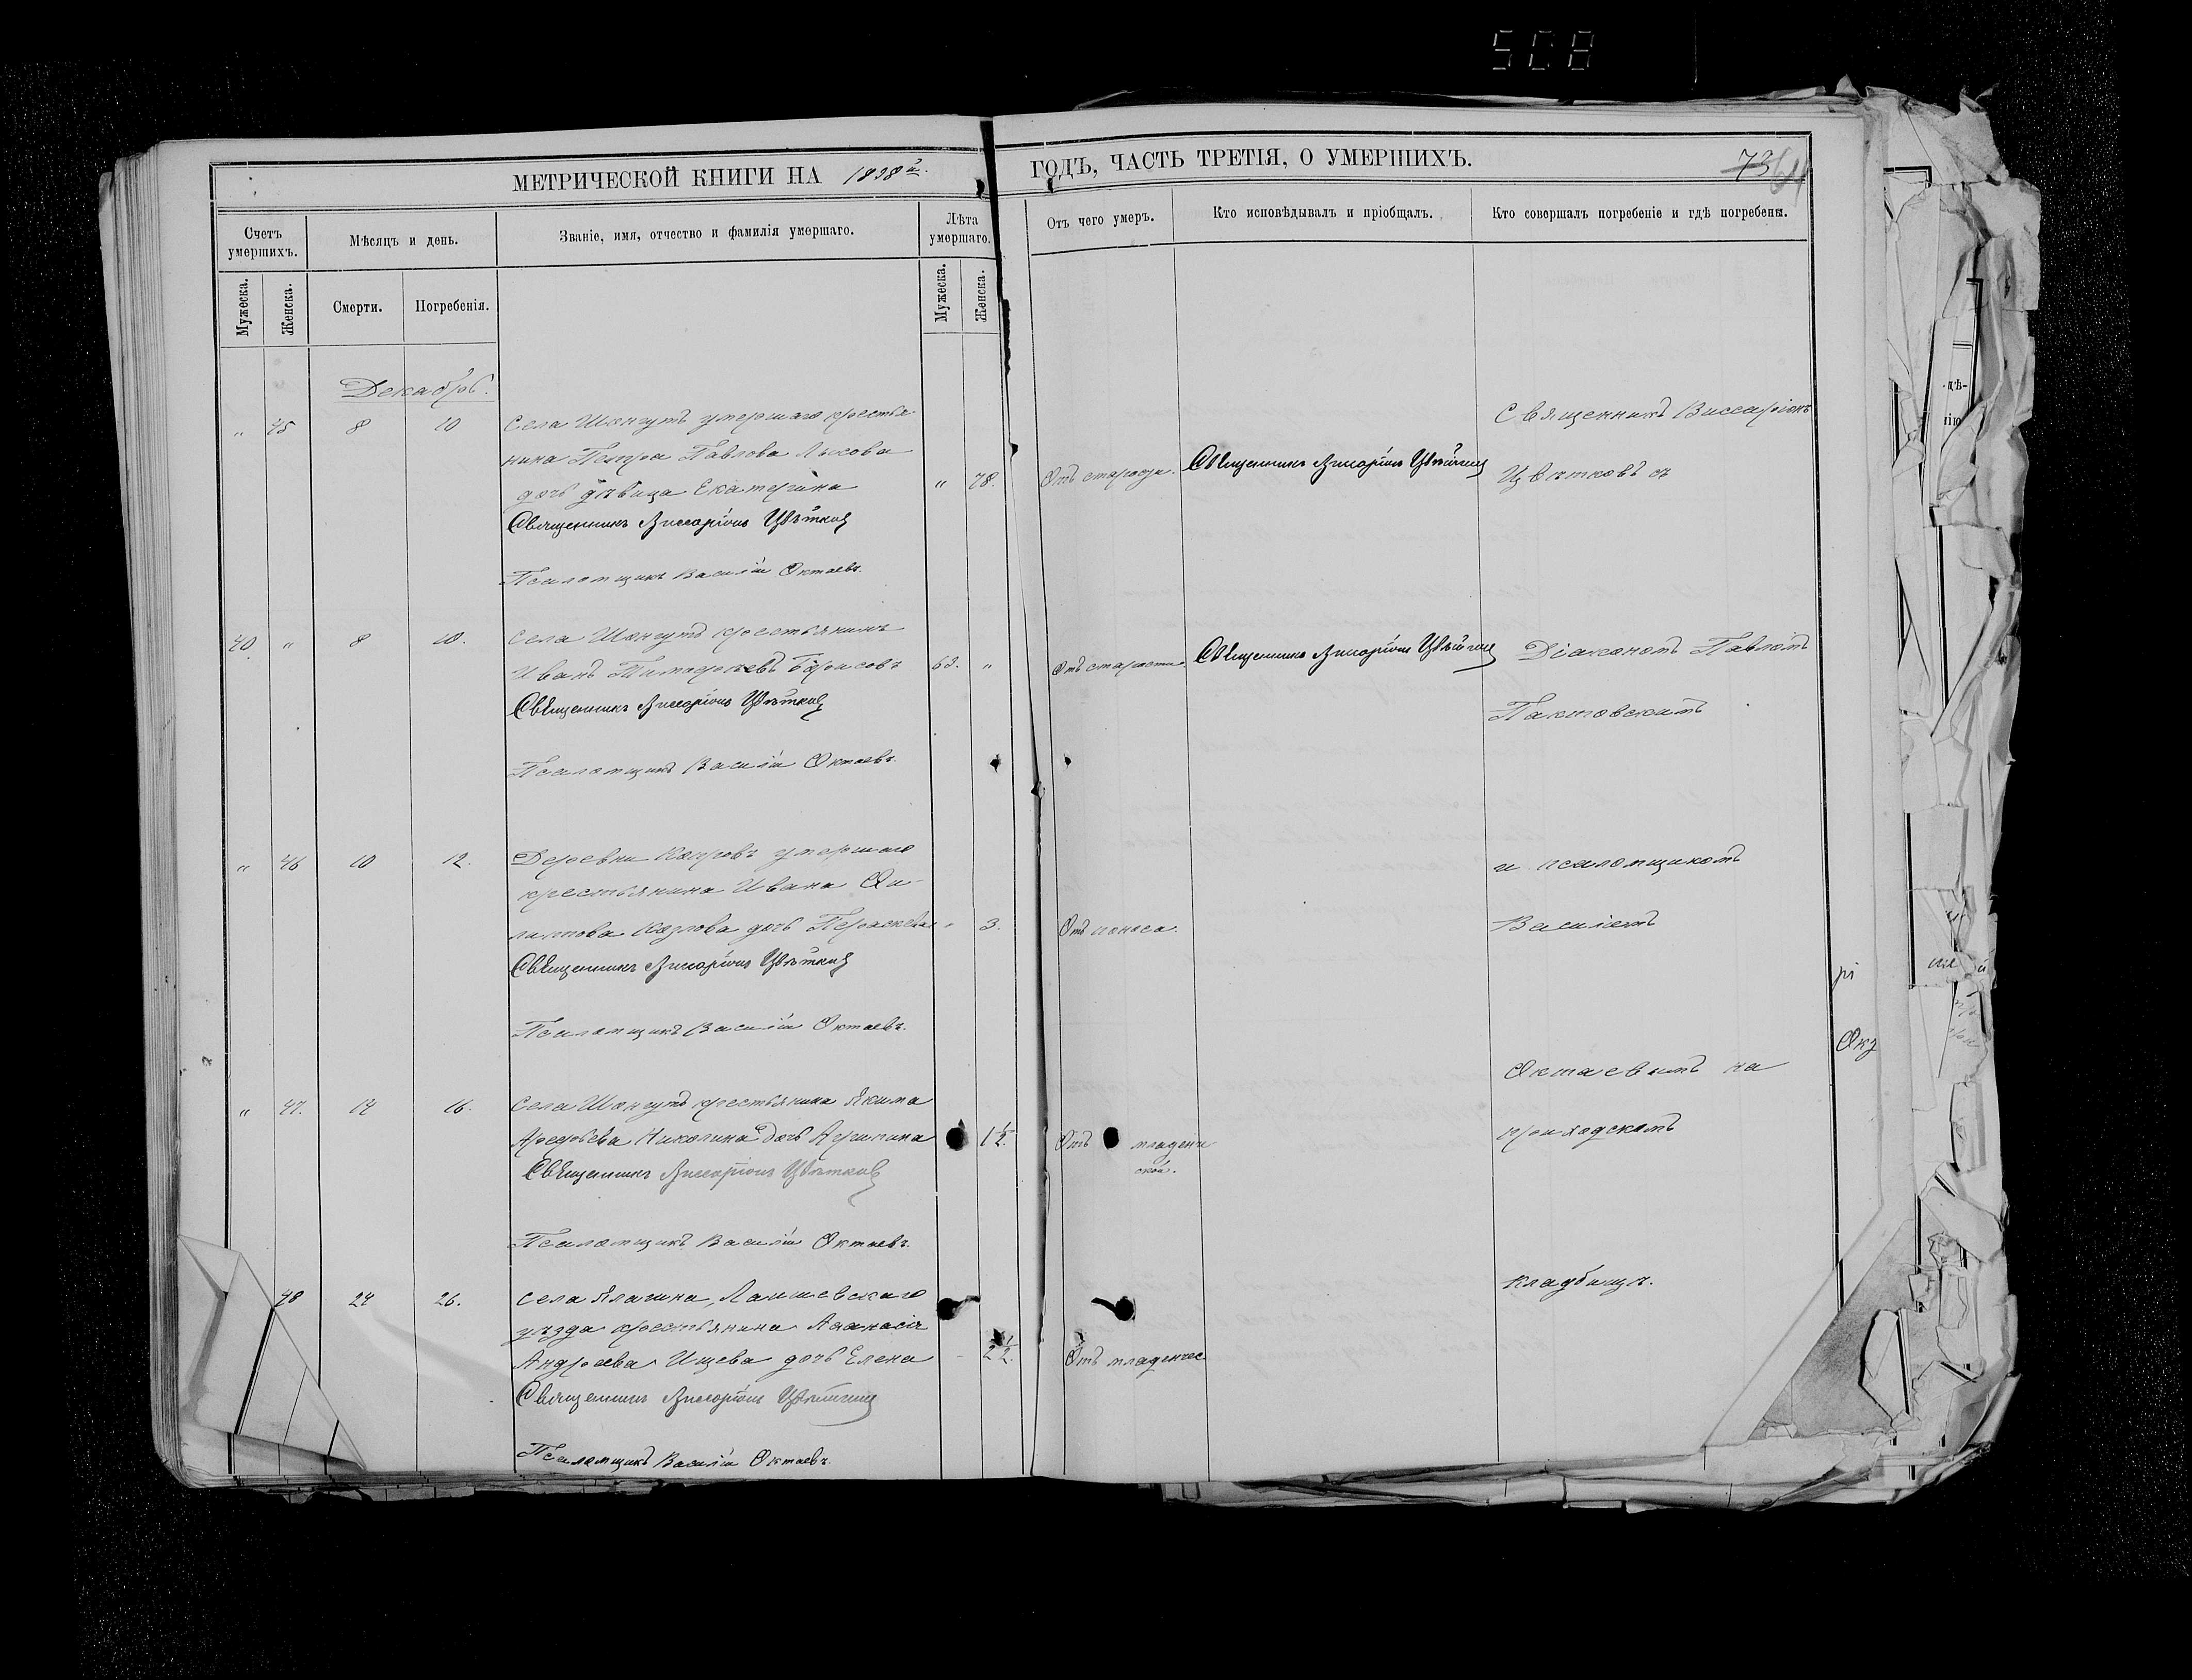 508
МЕТРИЧЕСКОЙ КНИГИ НА 1898й
ГОДЪ, ЧАСТЬ ТРЕТІЯ, О УМЕРШИХЪ.
73
Счетъ умершихъ.
Мѣсяцъ и день.
Званіе, имя, отчество и фамилія умершаго.
Лѣта умершаго.
Отъ чего умеръ.
Кто исповѣдывалъ и пріобщалъ.
Кто совершалъ погребеніе и гдѣ погребены.
Мужеска.
Женска.
Смерти.
Погребенія.
Мужеска.
Женска.
Декабрь.
" 45 8 10
Села Шонгутъ умершаго крестья-
нина Петра Павлова Лысова
дочь дѣвица Екатерина
" 78.
Отъ старости.
Священникъ Виссаріонъ Цвѣтковъ
Священникъ Виссаріонъ
Цвѣтковъ съ
Священникъ Виссаріонъ Цвѣтковъ
Псаломщикъ Василій Октаевъ.
40 " 8 10.
Села Шонгутъ крестьянинъ
Иванъ Тимофеевъ Борисовъ
63. "
Отъ старости
Священникъ Виссаріонъ Цвѣтковъ
Діакономъ Павломъ
Священникъ Виссаріонъ Цвѣтковъ
Псаломщикъ Василій Октаевъ.
" 46 10 12.
Деревни умершаго
крестьянина Ивана Фи-
липпова Козлова дочь Параскева
" 3.
Отъ поноса.
и псаломщикомъ
Василіемъ
Священникъ Виссаріонъ Цвѣтковъ
Псаломщикъ Василій Октаевъ.
Октаевымъ на
" 47. 14 16.
Села Шонгутъ крестьянина Якима
Арефьева Николина дочь Агрипина
1½.
Отъ младенче
ской.
приходскомъ
Священникъ Виссаріонъ Цвѣтковъ
Псаломщикъ Василій Октаевъ.
48 24 26.
Села Ялагина, Лаишевскаго
уѣзда крестьянина Афанасія
Андреева Ищева дочь Елена
2½.
Отъ младенчес
кладбищѣ.
Священникъ Виссаріонъ Цвѣтковъ
Псаломщикъ Василій Октаевъ.